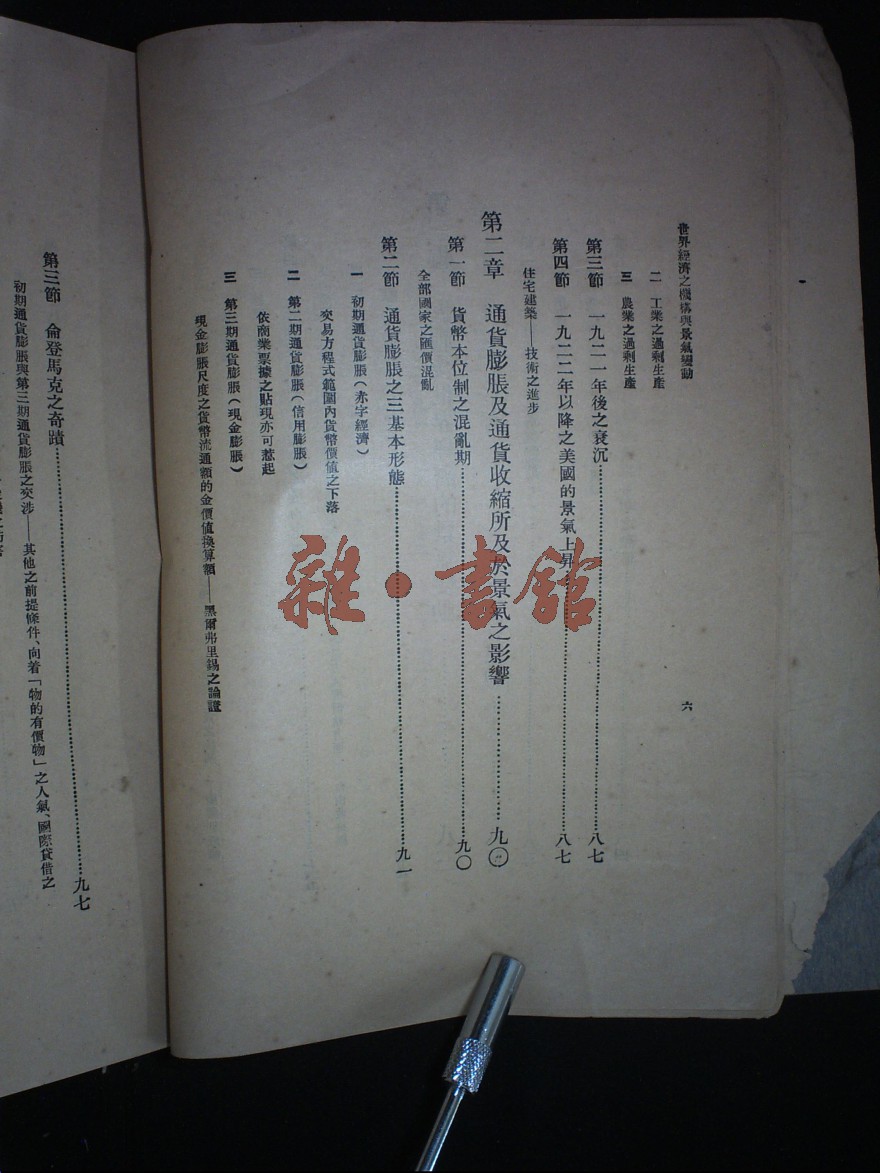 世界經濟之機構與景氣變動
六
二 工業之過剩生產
三 農業之過剩生產
第三節 一九二一年後之衰沉……八七
第四節 一九二二年以降之美國的景氣上昇……八七
住宅建築——技術之進步
第二章 通貨膨脹及通貨收縮所及於景氣之影響……九〇
第一節 貨幣本位制之混亂期……九〇
全部國家之匯價混亂
第二節 通貨膨脹之三基本形態……九一
一 初期通貨膨脹(赤字經濟)
交易方程式範圍內貨幣價值之下落
二 第二期通貨膨脹(信用膨脹)
依商業票據之貼現亦可惹起
三 第三期通貨膨脹(現金膨脹)
現金膨脹尺度之貨幣流通額的金價值換算額——黑爾弗里錫之論證
第三節 侖登馬克之奇蹟……九七
初期通貨膨脹與第三期通貨膨脹之交涉——其他之前提條件、向着「物的有價物」之人氣、國際貸借之
雜·書館